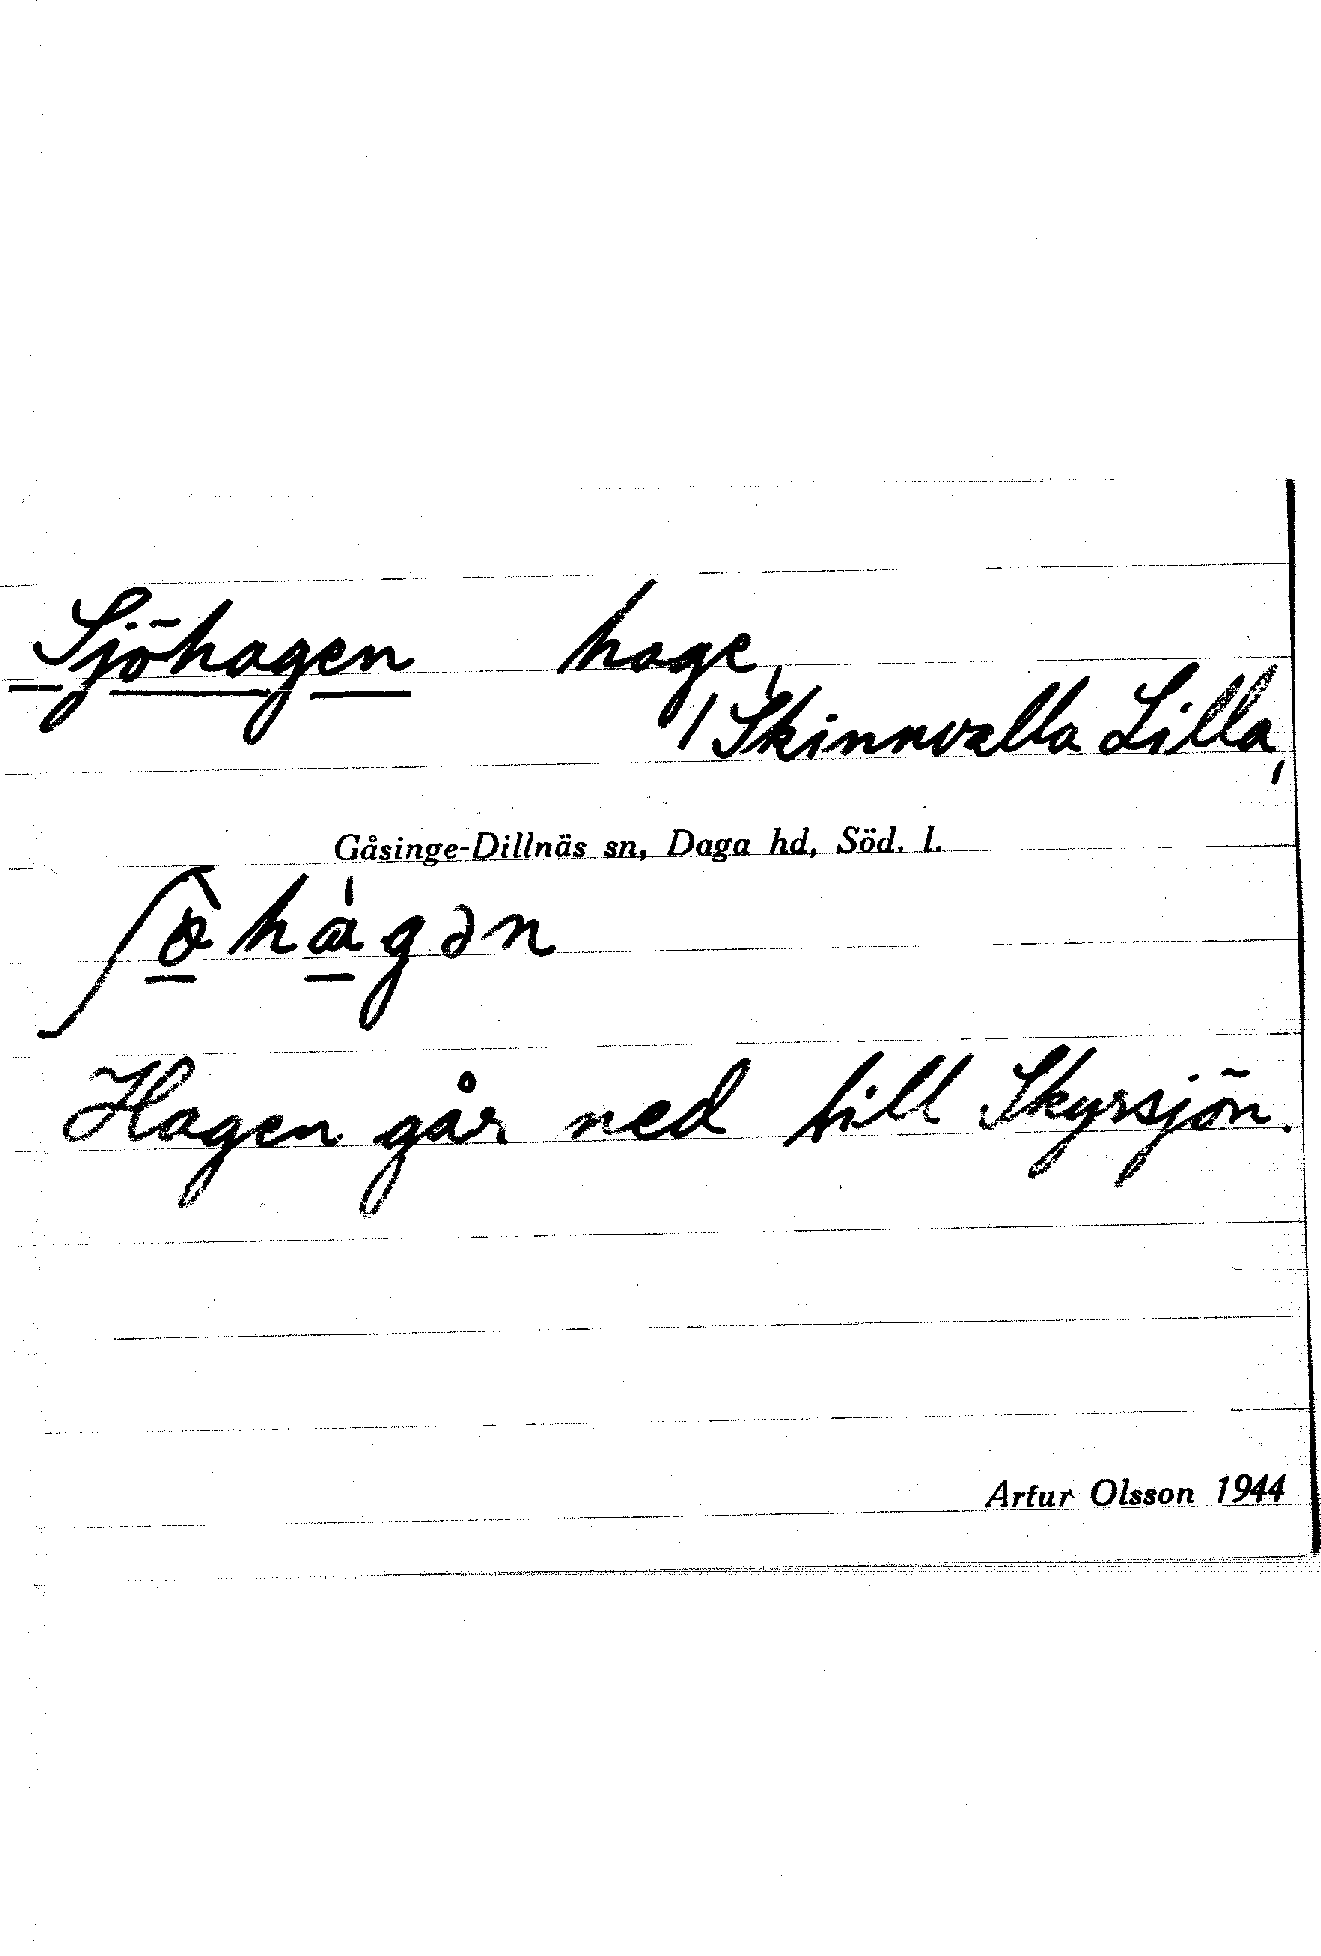 Sjöhagen hage,
/Skinnvalla Lilla,
Gåsinge-Dillnäs sn, Daga hd, Söd. l.
ʃöhagən
Hagen går ned till Skyrsjön.
Artur Olsson 1944